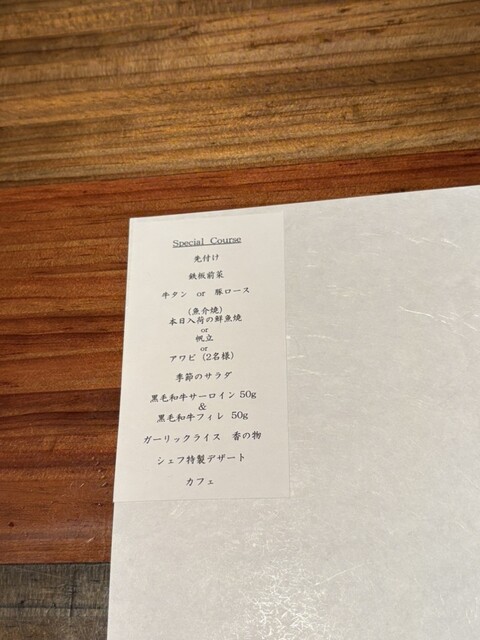 Special Course
先付け
鉄板前菜
牛タン or 豚ロース
(魚介焼)
本日入荷の鮮魚焼
or
帆立
or
アワビ (2名様)
季節のサラダ
黒毛和牛サーロイン 50g
&
黒毛和牛フィレ 50g
ガーリックライス 香の物
シェフ特製デザート
カフェ